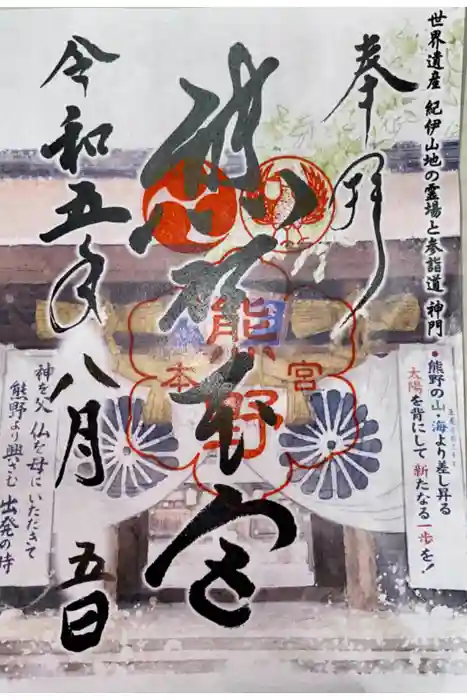 世界遺産 紀伊山地の霊場と参詣道 神門
熊野の山・海より差し昇る
太陽を背にして 新たなる一歩を!
奉拝
熊野本宮
令和五年八月五日
熊野
本宮
神を父 仏を母にいただきて
熊野より興さむ 出発の時